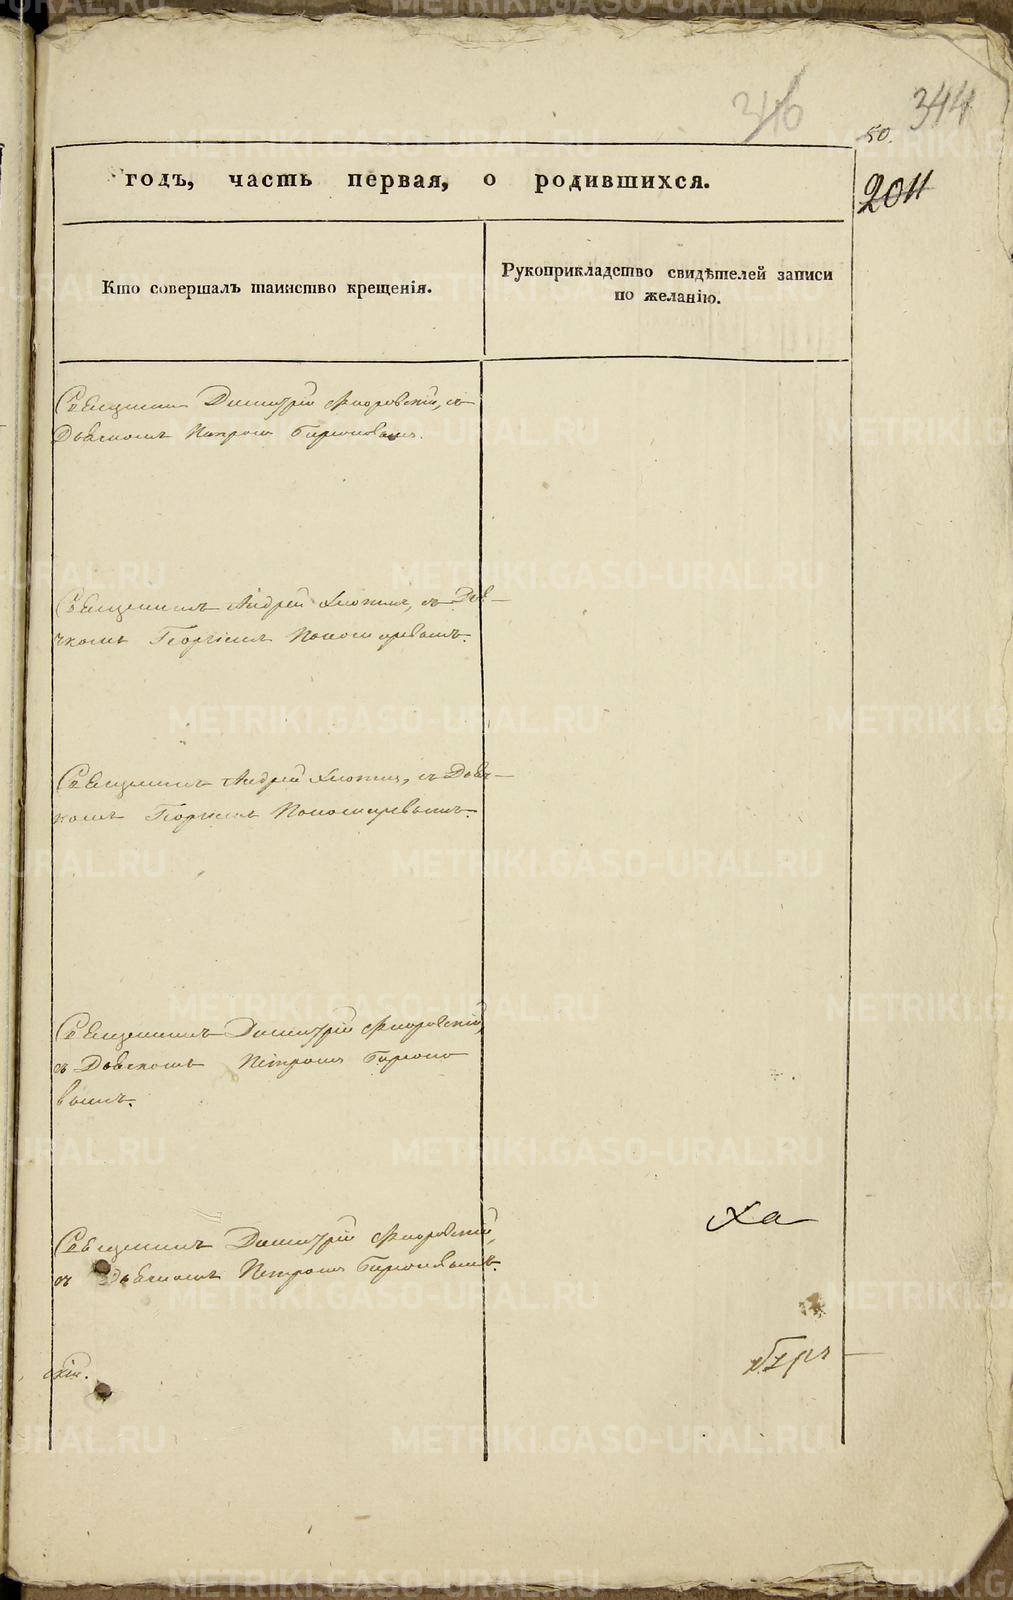 346
344
50.
201
годъ, часть первая, о родившихся.
Кто совершалъ таинство крещенія.
Рукоприкладство свидѣтелей записи
по желанію.
Священникъ Димитрій Флоровскій, съ
Дьячкомъ Петромъ
Священникъ Андрей съ Дья-
чкомъ Георгіемъ Пономаревымъ.
Священникъ Андрей съ Дьяч-
комъ Георгіемъ Пономаревымъ.
Священникъ Димитрій Флоровскій,
съ Дьячкомъ Петромъ
вымъ.
Ха
Священникъ Димитрій Флоровскій,
съ Дьячкомъ Петромъ
скій.
METRIKI.GASO-URAL.RU